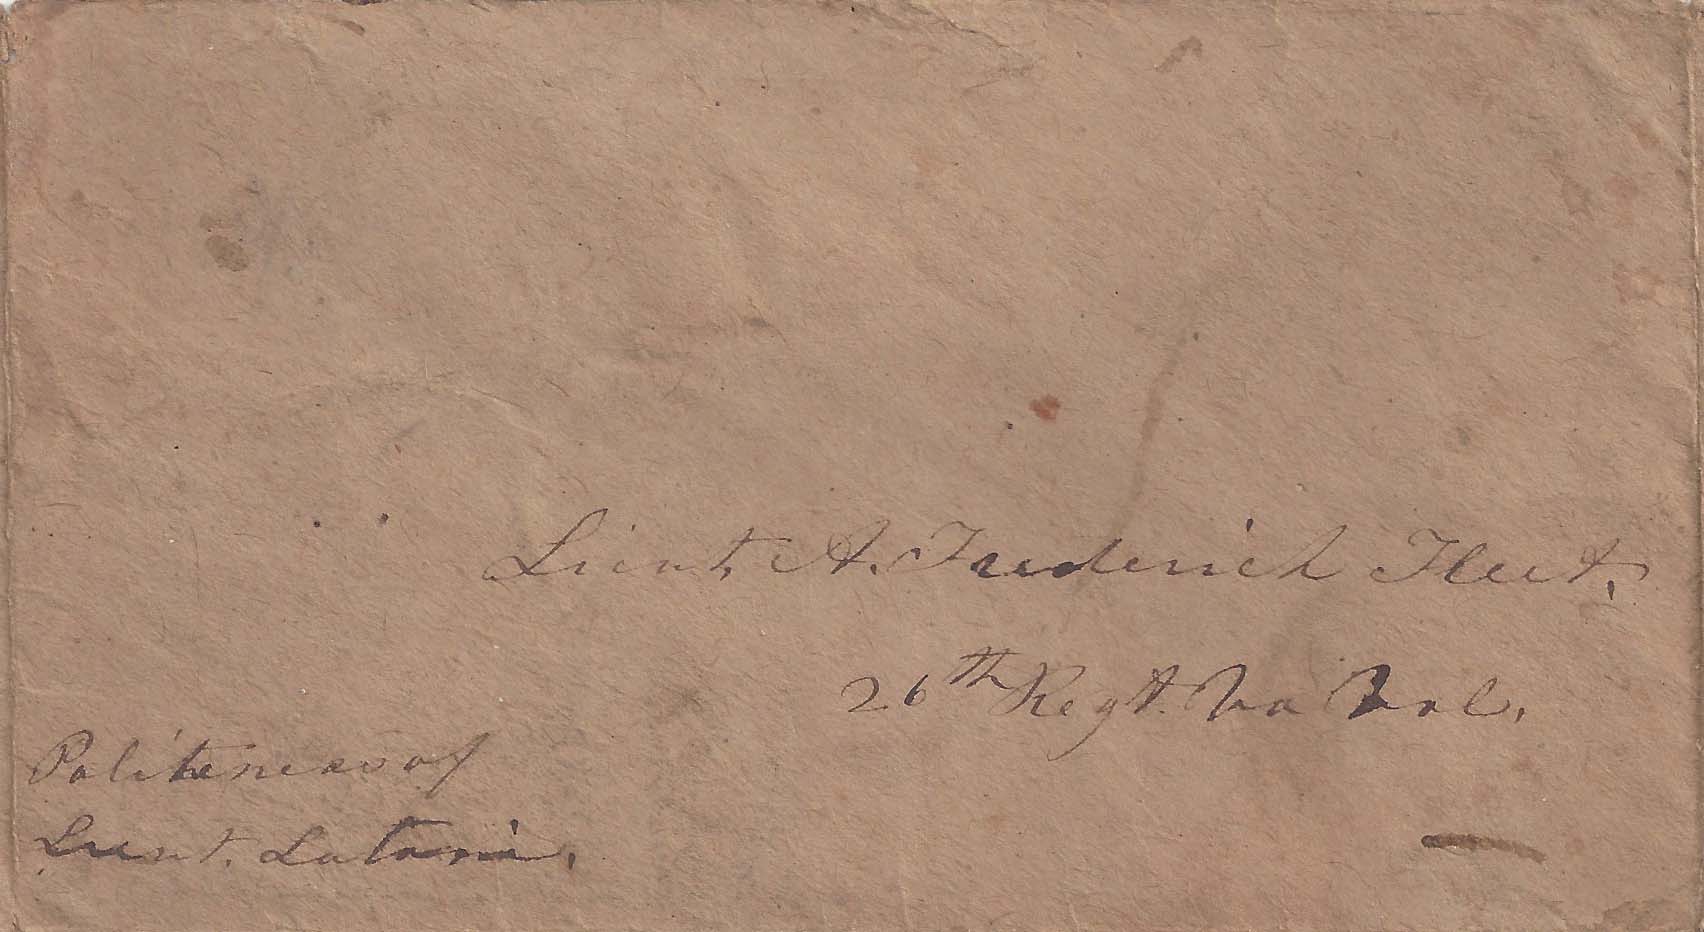 Lieut. A. Frederick Fleet.
26th Regt. Va Vol.
Politeness of
Lieut. Latané.